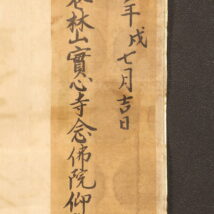 年戌七月吉日
林山實心寺念佛院仰